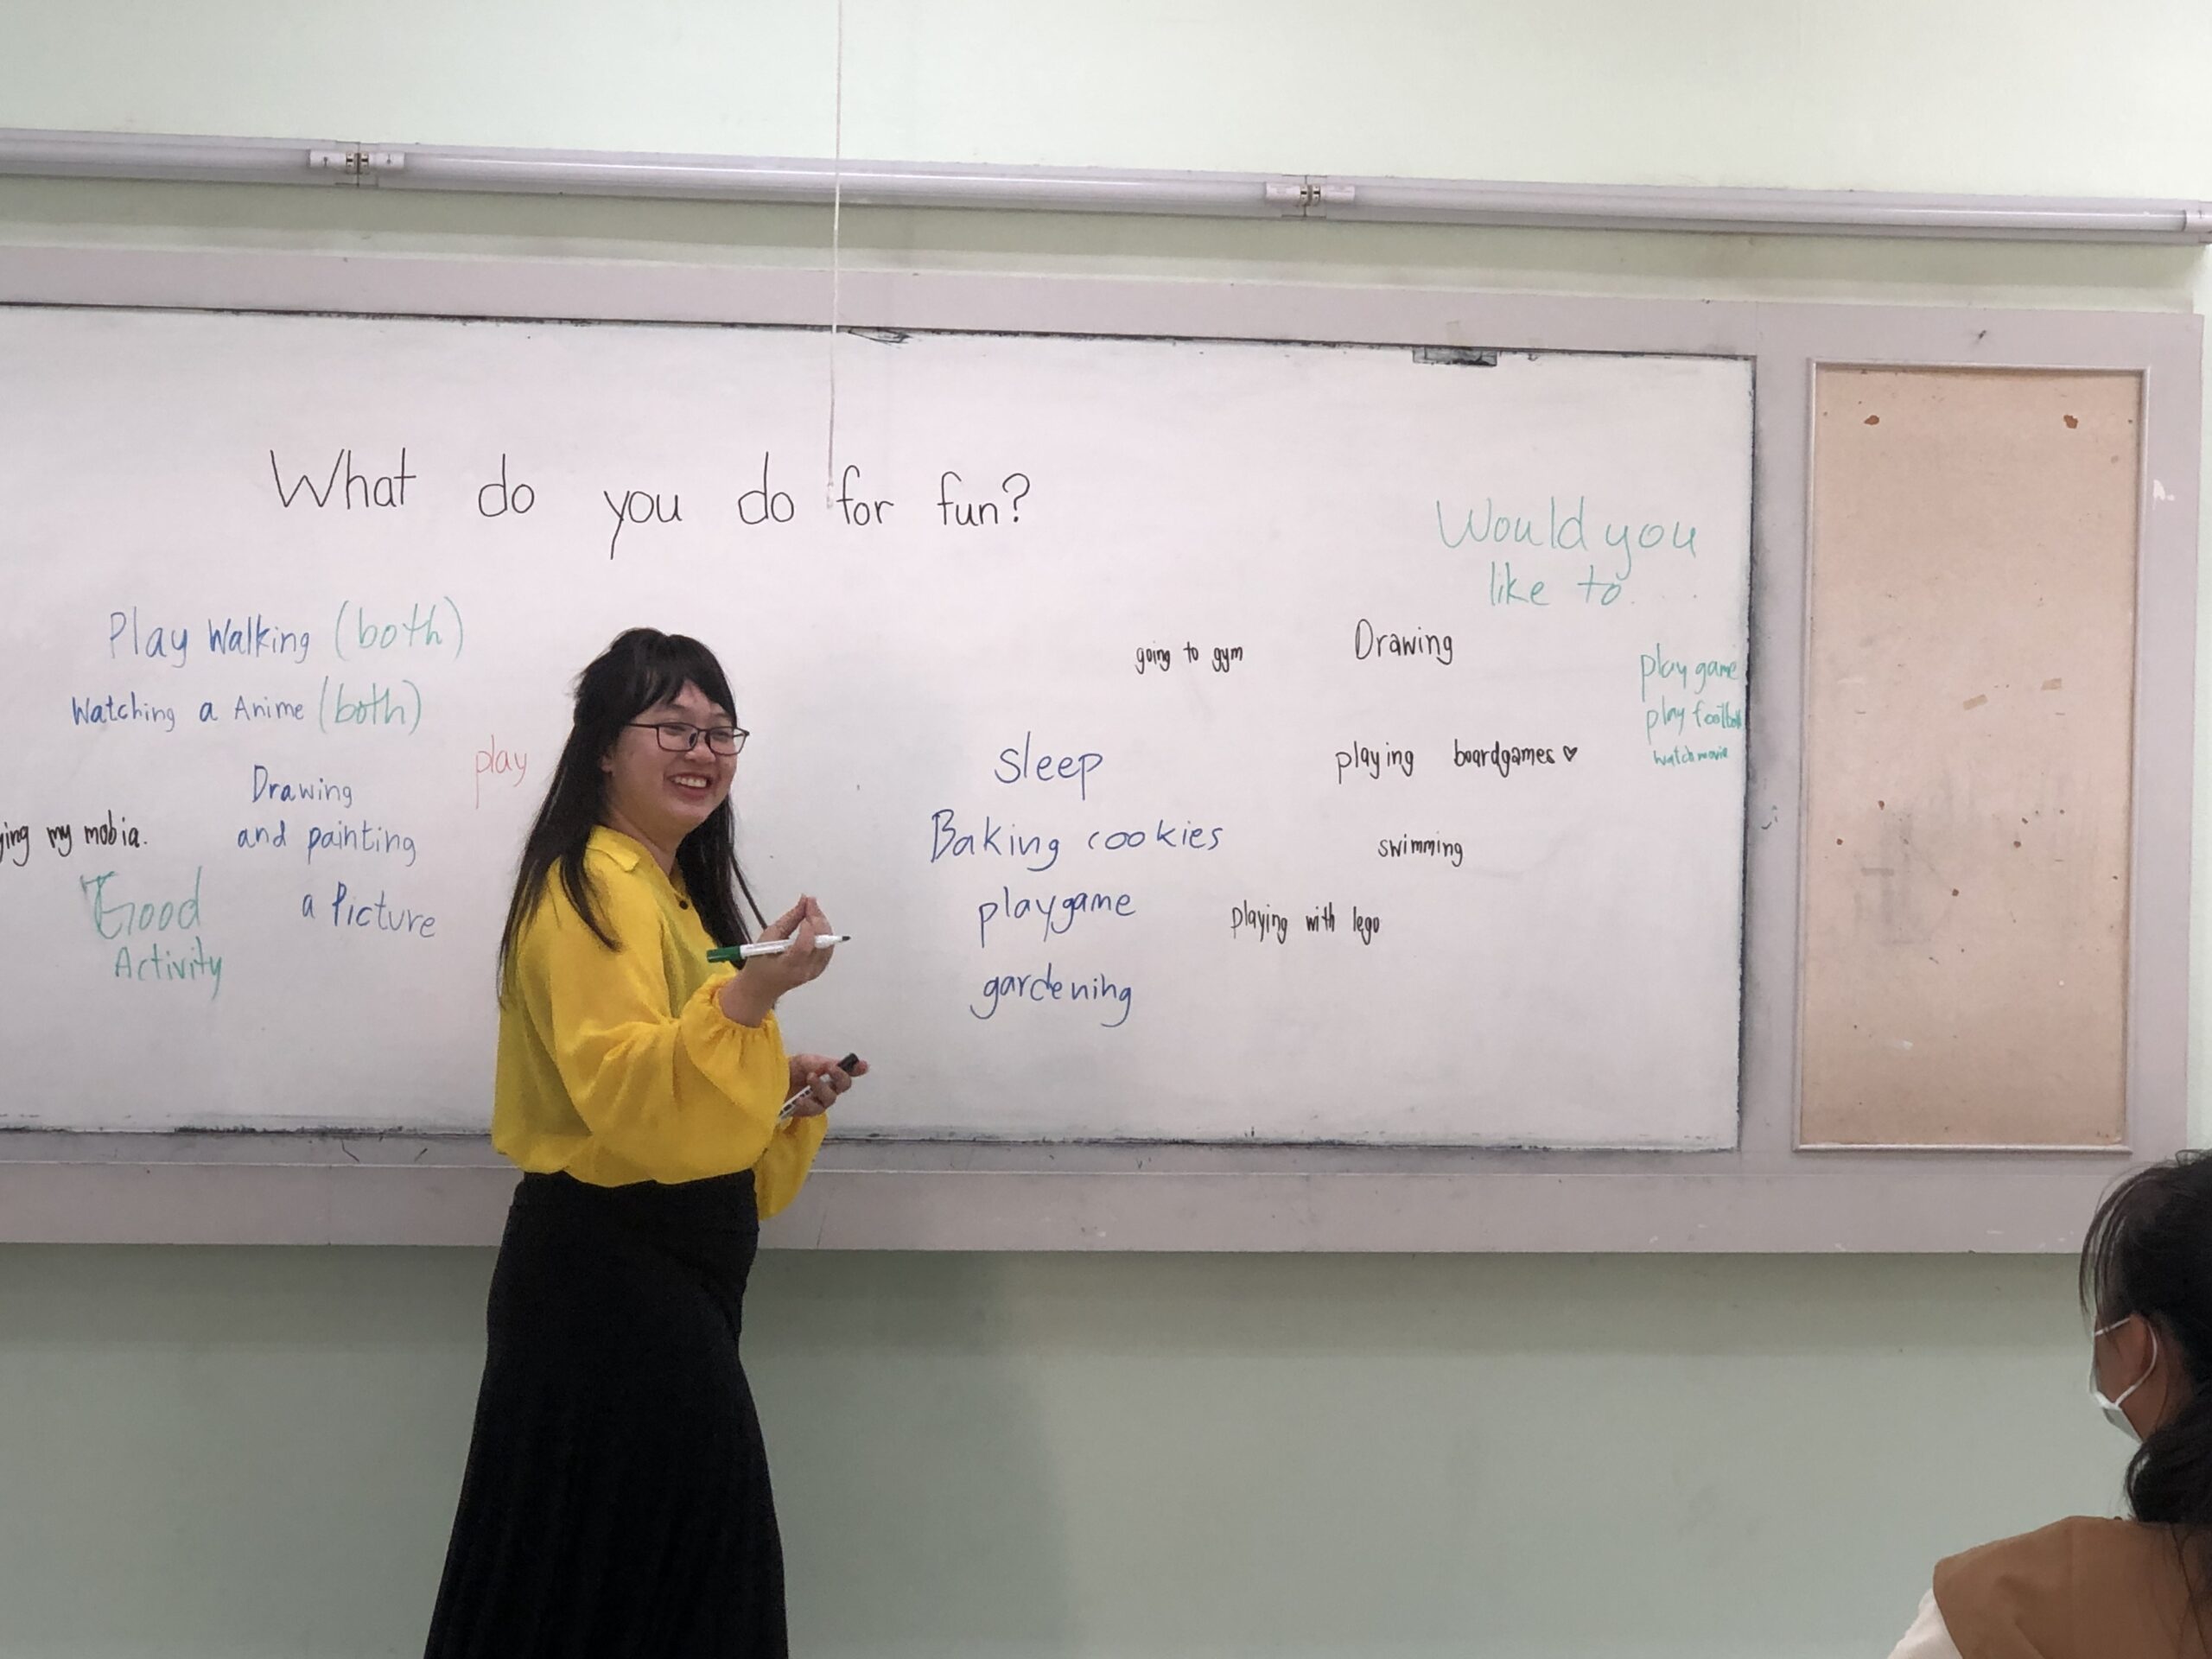 What do you do for fun?
Would you
like to
Play Walking (both)
Watching a Anime (both)
Drawing
and painting
a Picture
play
my mobia.
Good
Activity
going to gym
Drawing
sleep
playing boardgames ♥
Baking cookies
swimming
playgame
playing with lego
gardening
play game
play
watch movie